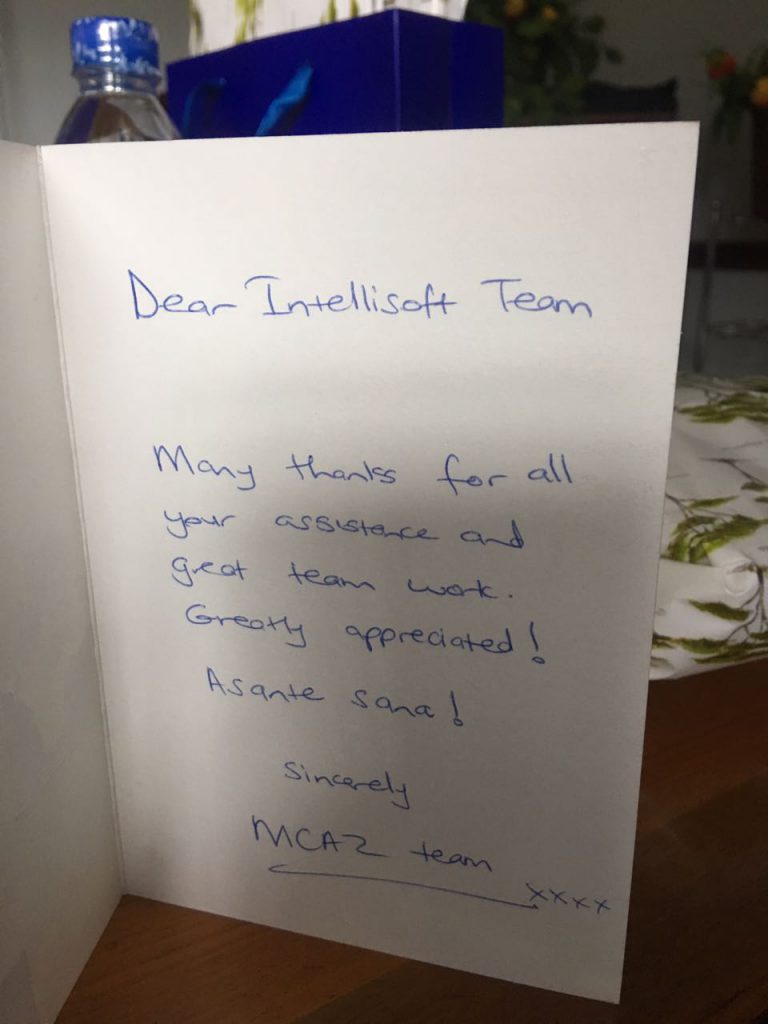 Dear Intellisoft Team
Many thanks for all
your assistence and
great team work.
Greatly appreciated!
Asante sana!
Sincerely
MCAZ team
xxxx